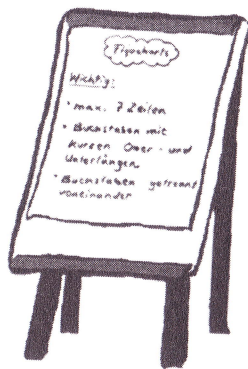 Figurcharts
Wichtig:
• max. 7 Zeilen
• Buchstaben mit
kurzen Ober- und
Unterlängen
• Buchstaben getrennt
voneinander